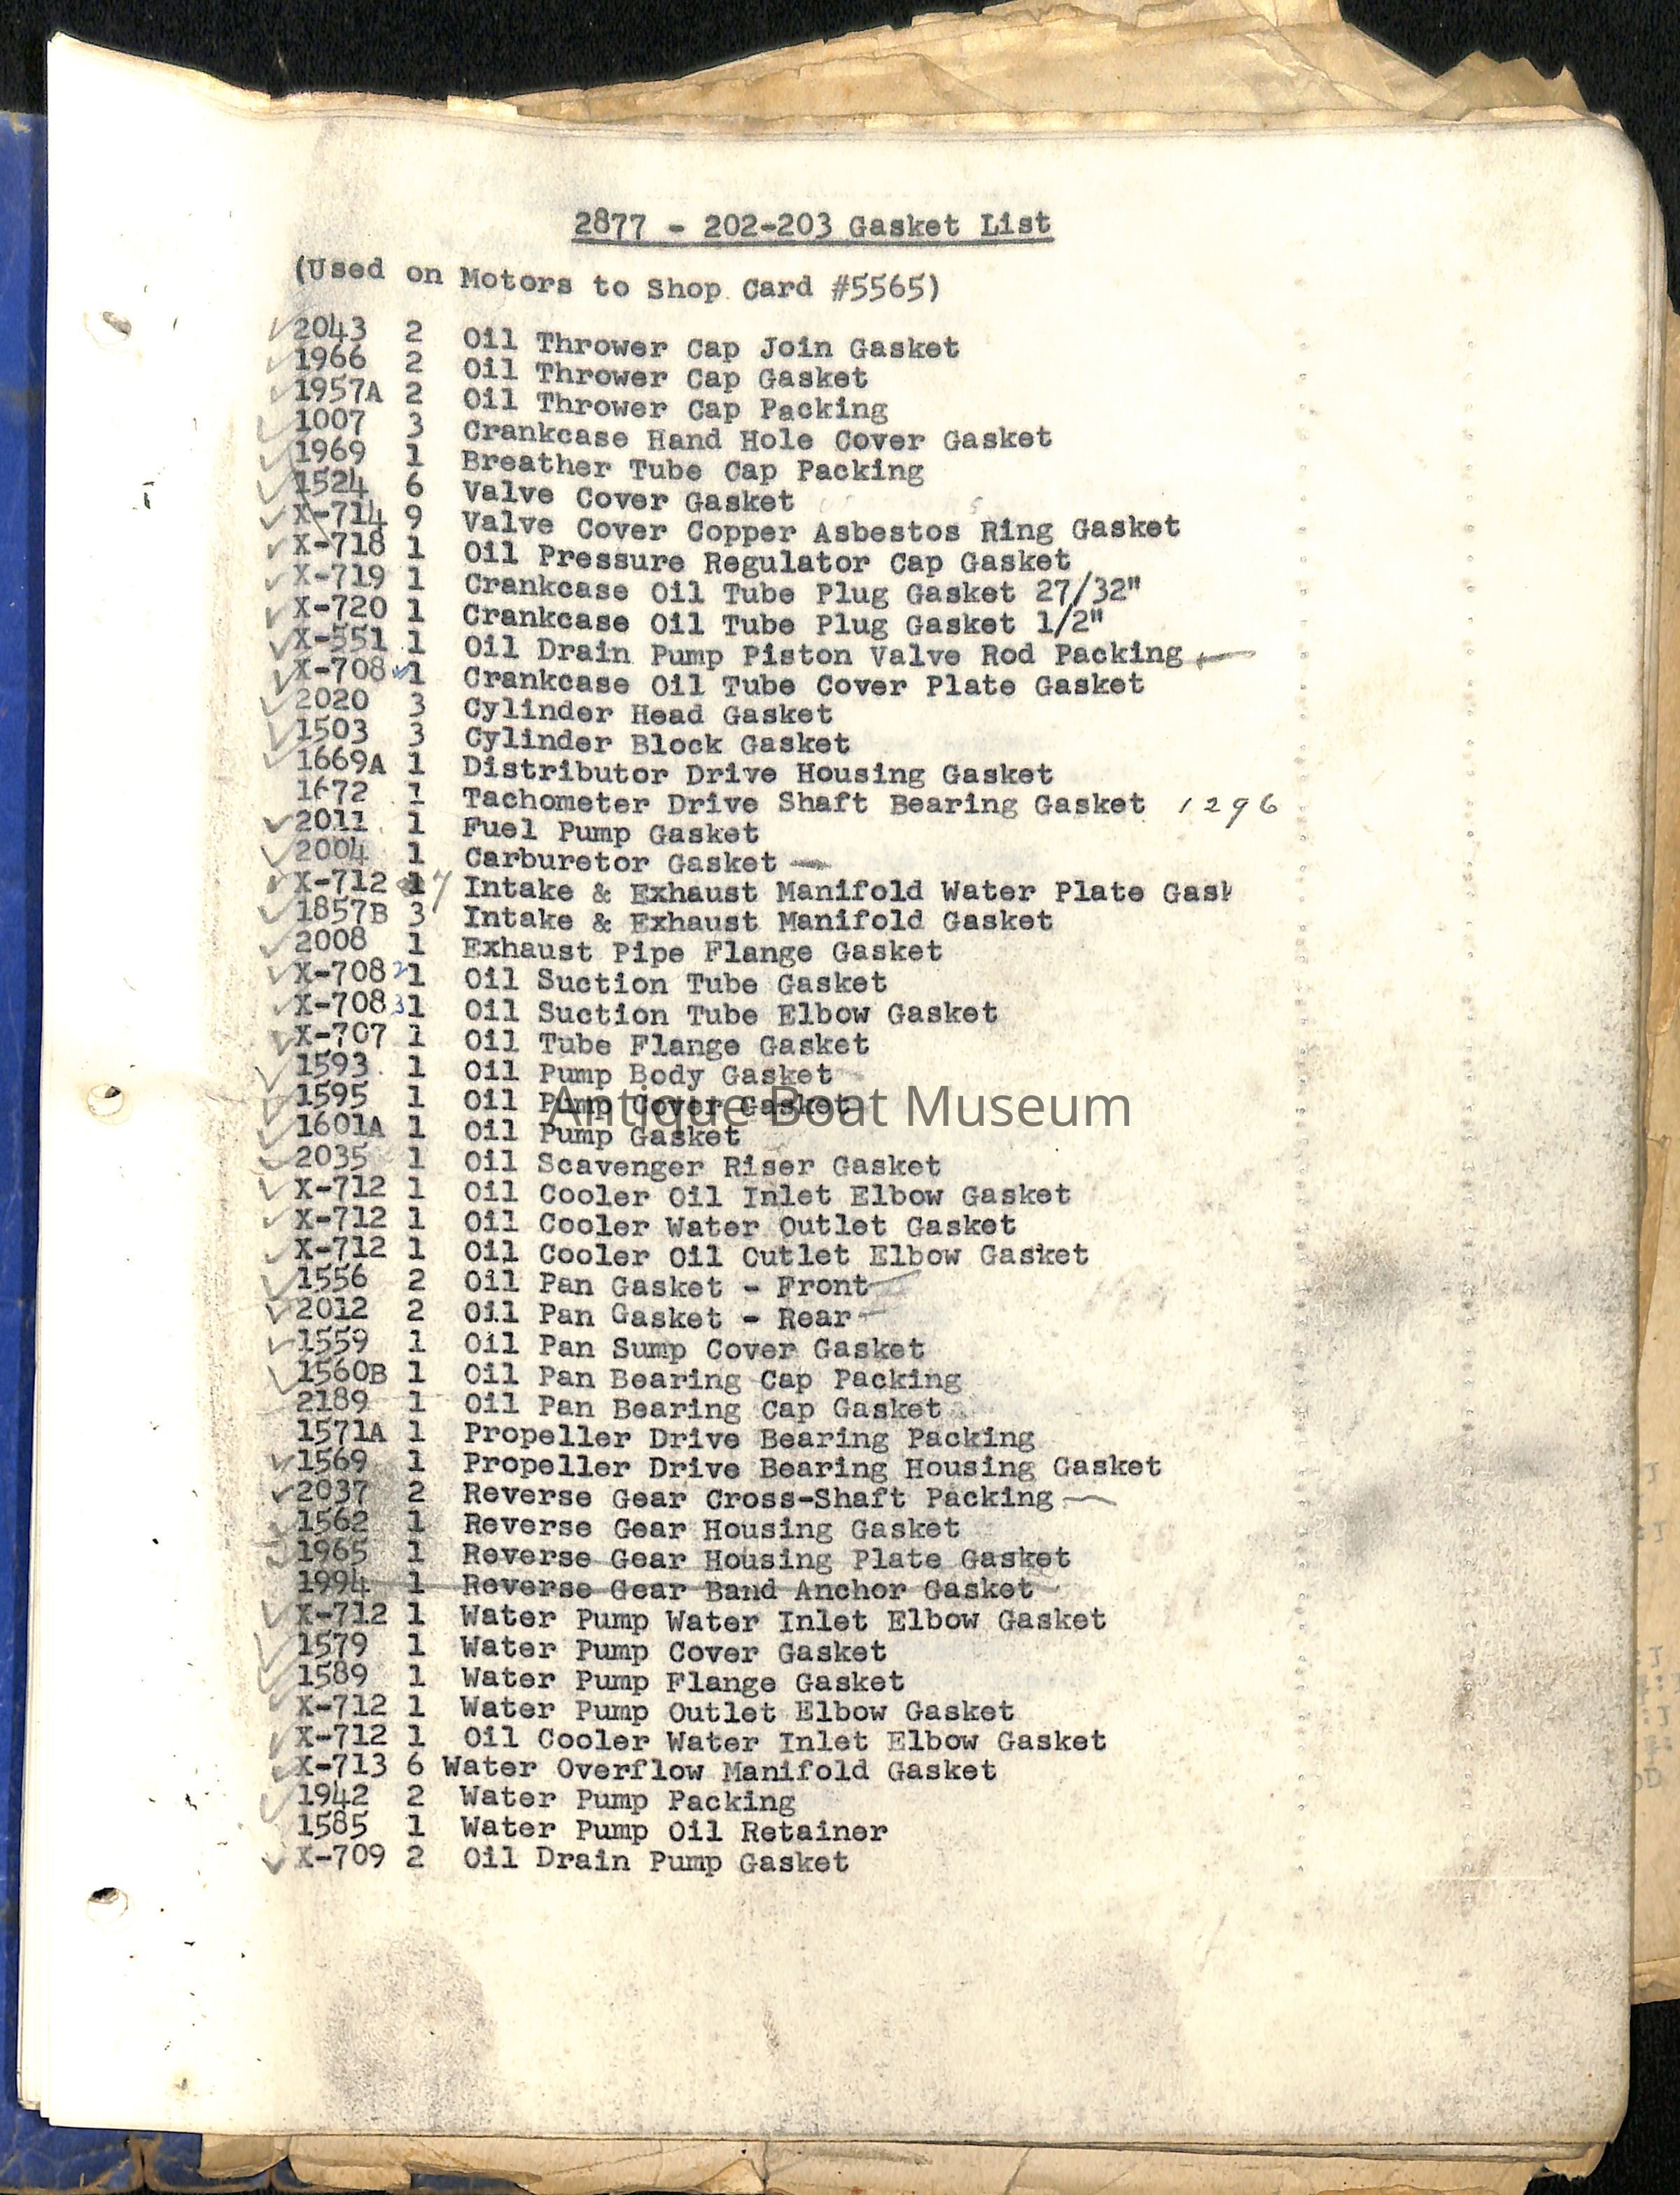 2877 - 202-203 Gasket List
(Used on Motors to Shop Card #5565)
2043 2 Oil Thrower Cap Join Gasket
1966 2 Oil Thrower Cap Gasket
1957A 2 Oil Thrower Cap Packing
1007 3 Crankcase Hand Hole Cover Gasket
1969 1 Breather Tube Cap Packing
1524 6 Valve Cover Gasket
X-714 9 Valve Cover Copper Asbestos Ring Gasket
X-718 1 Oil Pressure Regulator Cap Gasket
X-719 1 Crankcase Oil Tube Plug Gasket 27/32"
X-720 1 Crankcase Oil Tube Plug Gasket 1/2"
X-551 1 Oil Drain Pump Piston Valve Rod Packing
X-708 1 Crankcase Oil Tube Cover Plate Gasket
2020 3 Cylinder Head Gasket
1503 3 Cylinder Block Gasket
1669A 1 Distributor Drive Housing Gasket
1672 1 Tachometer Drive Shaft Bearing Gasket 1296
2011 1 Fuel Pump Gasket
2004 1 Carburetor Gasket
X-712 Intake & Exhaust Manifold Water Plate Gask
1857B 3 Intake & Exhaust Manifold Gasket
2008 1 Exhaust Pipe Flange Gasket
X-708 2 1 Oil Suction Tube Gasket
X-708 3 1 Oil Suction Tube Elbow Gasket
X-707 1 Oil Tube Flange Gasket
1593 1 Oil Pump Body Gasket
1595 1 Oil Pump Cover Gasket
Antique Boat Museum
1601A 1 Oil Pump Gasket
2035 1 Oil Scavenger Riser Gasket
X-712 1 Oil Cooler Oil Inlet Elbow Gasket
X-712 1 Oil Cooler Water Outlet Gasket
X-712 1 Oil Cooler Oil Outlet Elbow Gasket
1556 2 Oil Pan Gasket - Front
2012 2 Oil Pan Gasket - Rear
1559 1 Oil Pan Sump Cover Gasket
1560B 1 Oil Pan Bearing Cap Packing
2189 1 Oil Pan Bearing Cap Gasket
1571A 1 Propeller Drive Bearing Packing
1569 1 Propeller Drive Bearing Housing Gasket
2037 2 Reverse Gear Cross-Shaft Packing
1562 1 Reverse Gear Housing Gasket
1965 1 Reverse Gear Housing Plate Gasket
1994 1 Reverse Gear Band Anchor Gasket
X-712 1 Water Pump Water Inlet Elbow Gasket
1579 1 Water Pump Cover Gasket
1589 1 Water Pump Flange Gasket
X-712 1 Water Pump Outlet Elbow Gasket
X-712 1 Oil Cooler Water Inlet Elbow Gasket
X-713 6 Water Overflow Manifold Gasket
1942 2 Water Pump Packing
1585 1 Water Pump Oil Retainer
X-709 2 Oil Drain Pump Gasket